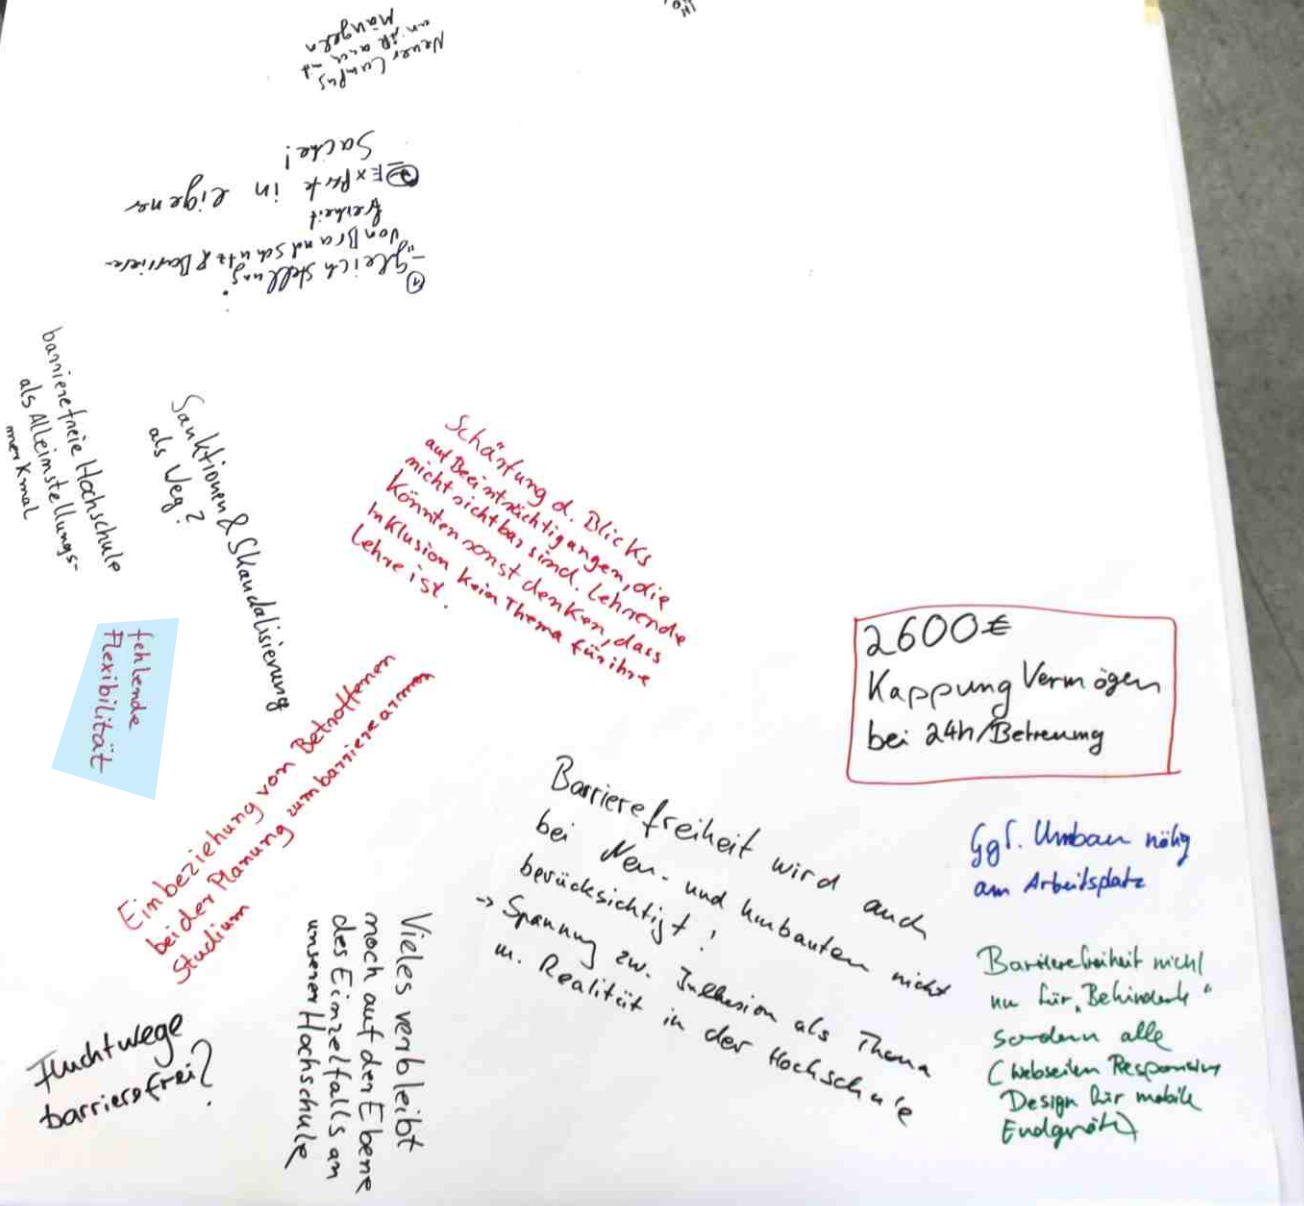 Neuer Campus
Mängeln
① "Gleichstellung"
von Brandschutz & Barriere-
freiheit
② Experte in eigener
Sache!
barrierefreie Hochschule
als Alleinstellungs-
merkmal
Sanktionen & Skandalisierung
als Weg?
Schärfung d. Blicks
auf Beeinträchtigungen, die
nicht sichtbar sind. Lehrende
könnten sonst denken, dass
Inklusion kein Thema für ihre
Lehre ist.
fehlende
Flexibilität
Einbeziehung von Betroffenen
bei der Planung zum barrierearmen
Studium
2600€
Kappung Vermögen
bei 24h/Betreuung
Barrierefreiheit wird auch
bei Neu- und Umbauten nicht
berücksichtigt!
→ Spannung zw. Inklusion als Thema
u. Realität in der Hochschule
Ggf. Umbau nötig
am Arbeitsplatz
Barrierefreiheit nicht
nur für „Behinderte“
sondern alle
(Webseiten Responsive
Design für mobile
Endgeräte)
Vieles verbleibt
noch auf der Ebene
des Einzelfalls an
unserer Hochschule
Fluchtwege
barrierefrei?